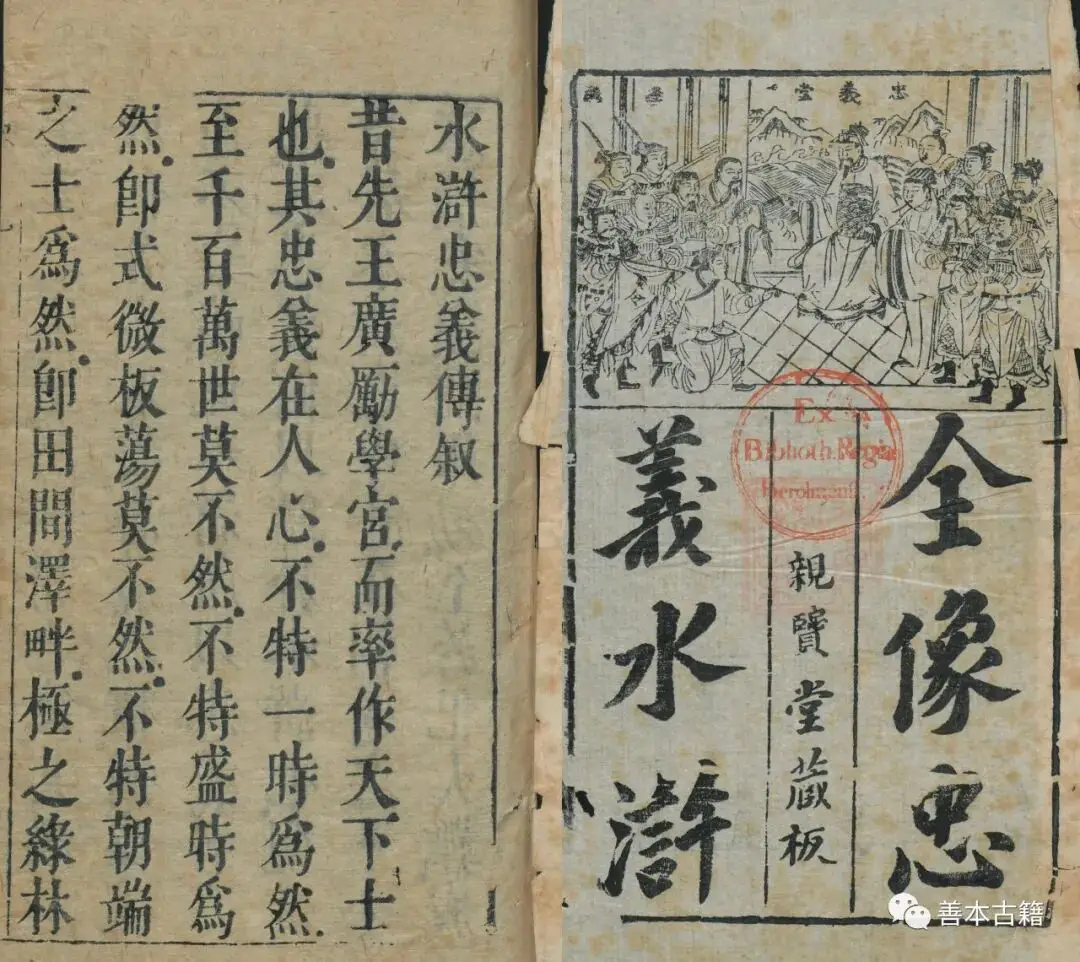 忠義堂
全像忠
義水滸
親賢堂藏板
Ex
Biblioth. Regia
Berolinensi.
水滸忠義傳叙
昔先王廣勵學宮而率作天下士
也其忠義在人心不特一時爲然
至千百萬世莫不然不特盛時爲
然卽式微板蕩莫不然不特朝端
之士爲然卽田間澤畔極之綠林
善本古籍